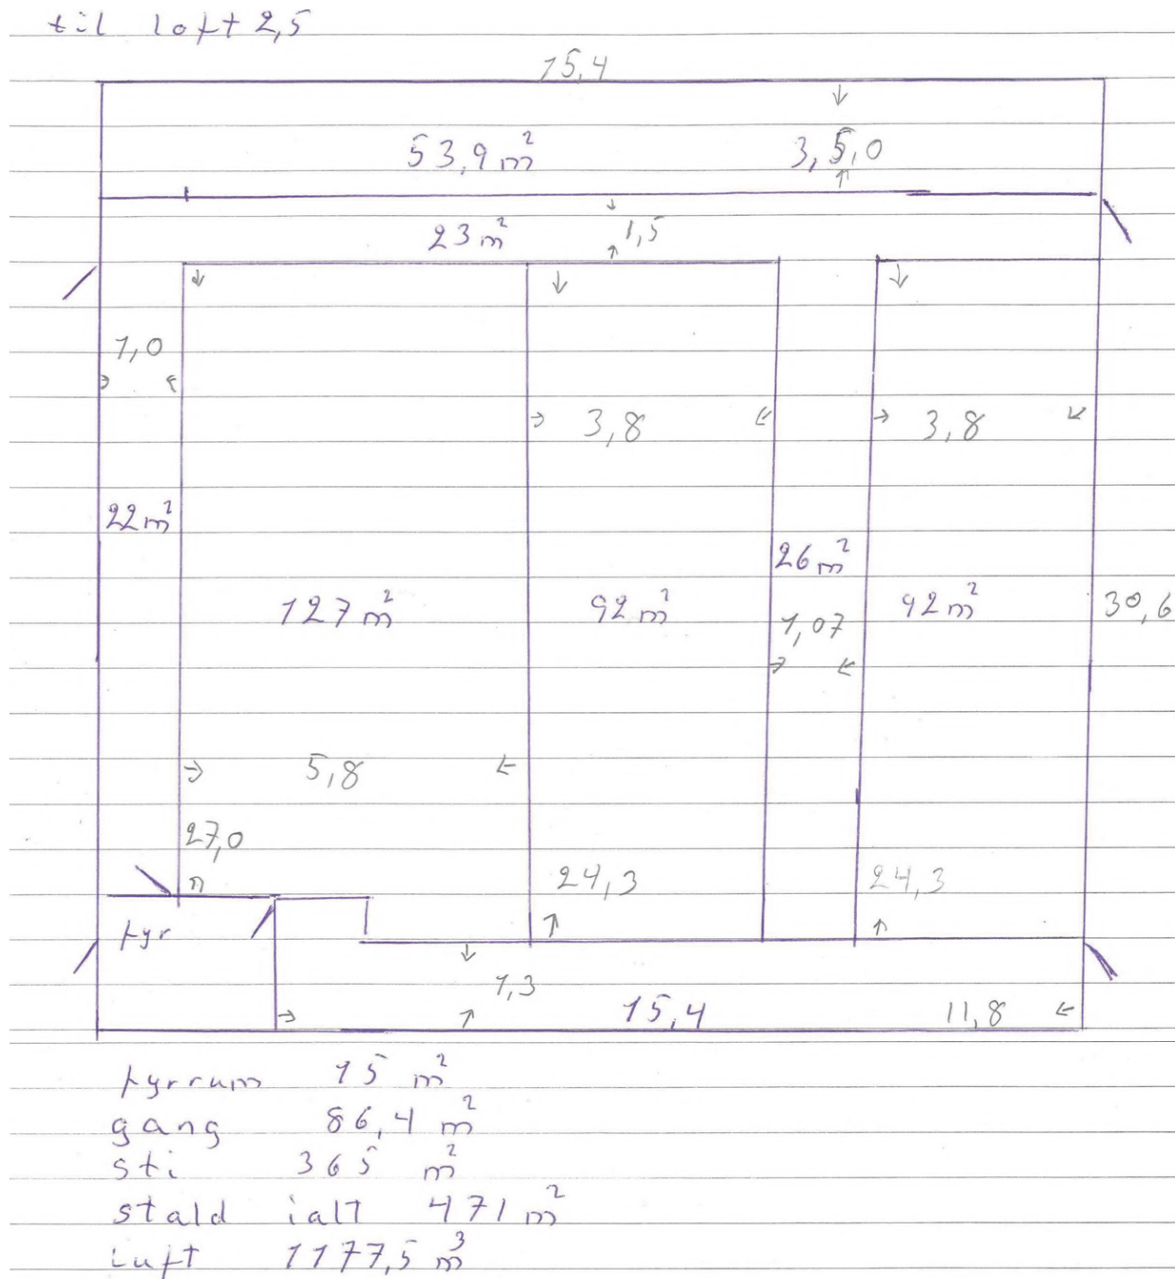 til loft 2,5
15,4
53,9 m² 3,5,0
23 m² 1,5
1,0
3,8 3,8
22 m²
26 m²
127 m² 92 m² 92 m² 30,6
1,07
5,8
27,0
24,3 24,3
fyr
1,3
15,4 11,8
fyrrum 15 m²
gang 86,4 m²
sti 365 m²
stald ialt 471 m²
Luft 1177,5 m³